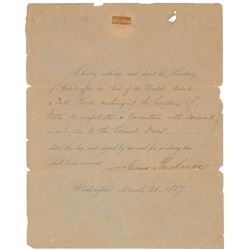 I hereby authorize and direct the Secretary
of State to affix the Seal of the United States to
a Full Power authorizing the Secretary of
State to negotiate a Convention with Denmark
in relation to the Sound Dues.
dated this day and signed by me and for so doing this
shall be his warrant.
James Buchanan
Washington March 21. 1857